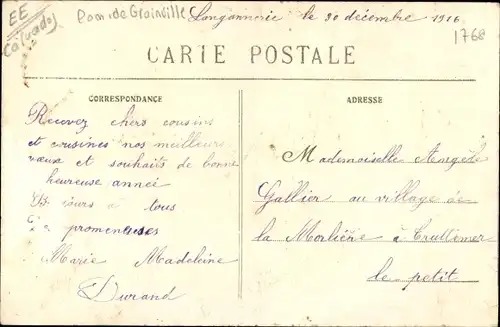 EE
Calvados
Pont de Grainville
Longannerie le 30 décembre 1916
1768
CARTE POSTALE
CORRESPONDANCE
Recevez chers cousins
et cousines nos meilleurs
vœux et souhaits de bonne
heureuse année
à tous
promeneuses
Marie Madeleine
Durand
ADRESSE
Mademoiselle Angèle
Gallier au village de
la Morlière à Truttemer
le petit